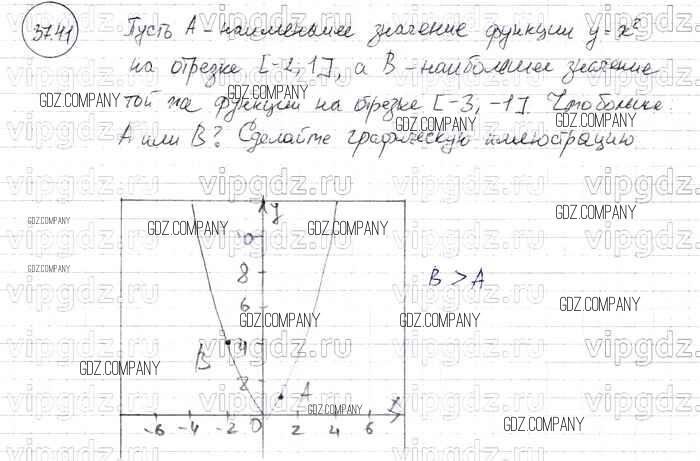 37.41 Пусть А - наименьшее значение функции y = x²
на отрезке [-2, 1], а В - наибольшее значение
той же функции на отрезке [-3, -1]. Что больше:
А или В? Сделайте графическую иллюстрацию
y
10
8
6
4
2
B
A
B > A
x
-6 -4 -2 0 2 4 6
GDZ.COMPANY
vipgdz.ru